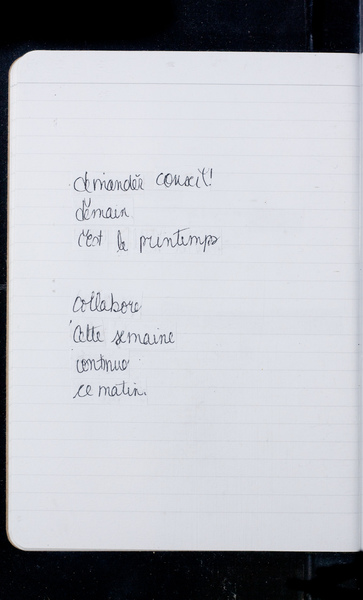 demander conseil!
demain
c'est le printemps
collabore
cette semaine
continue
ce matin.